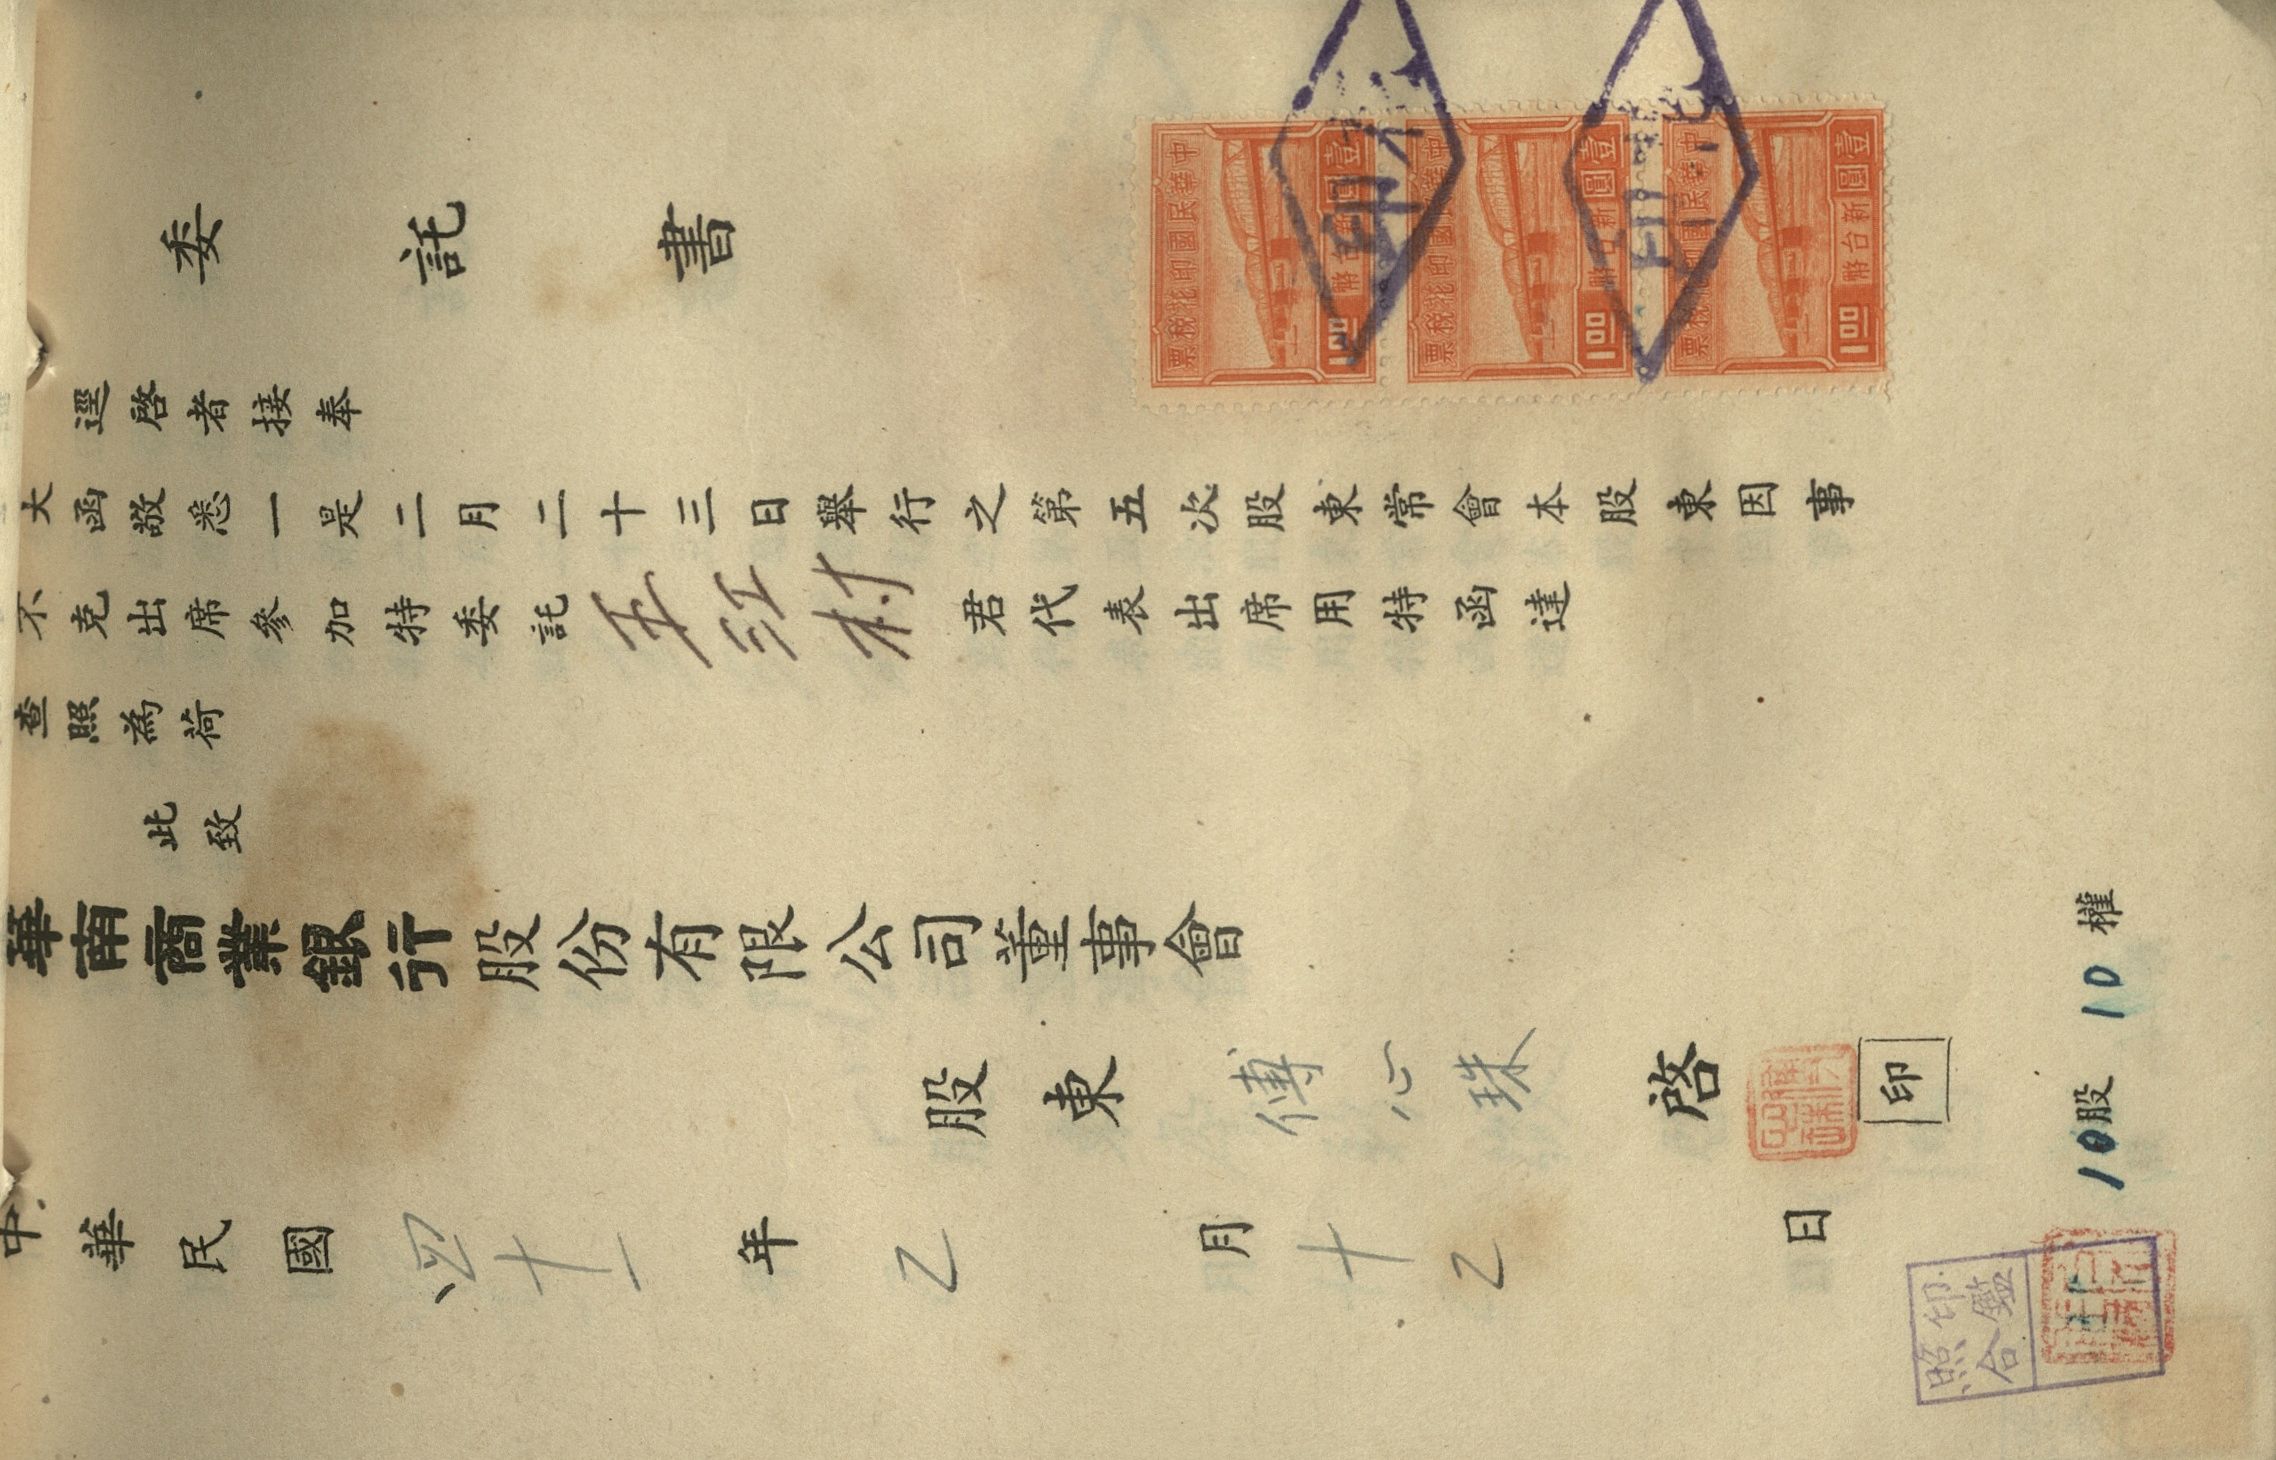 委託書
逕啓者接奉
大函敬悉一是二月二十三日舉行之第五次股東常會本股東因事
不克出席參加特委託王江村君代表出席用特函達
查照為荷
此致
華南商業銀行股份有限公司董事會
股東 傅心珠 啓 印
中華民國四十一年乙月十乙日
10股 10權
印鑑
照合
中華民國印花稅票
壹圓新台幣
1.00
中華民國印花稅票
壹圓新台幣
1.00
中華民國印花稅票
壹圓新台幣
1.00